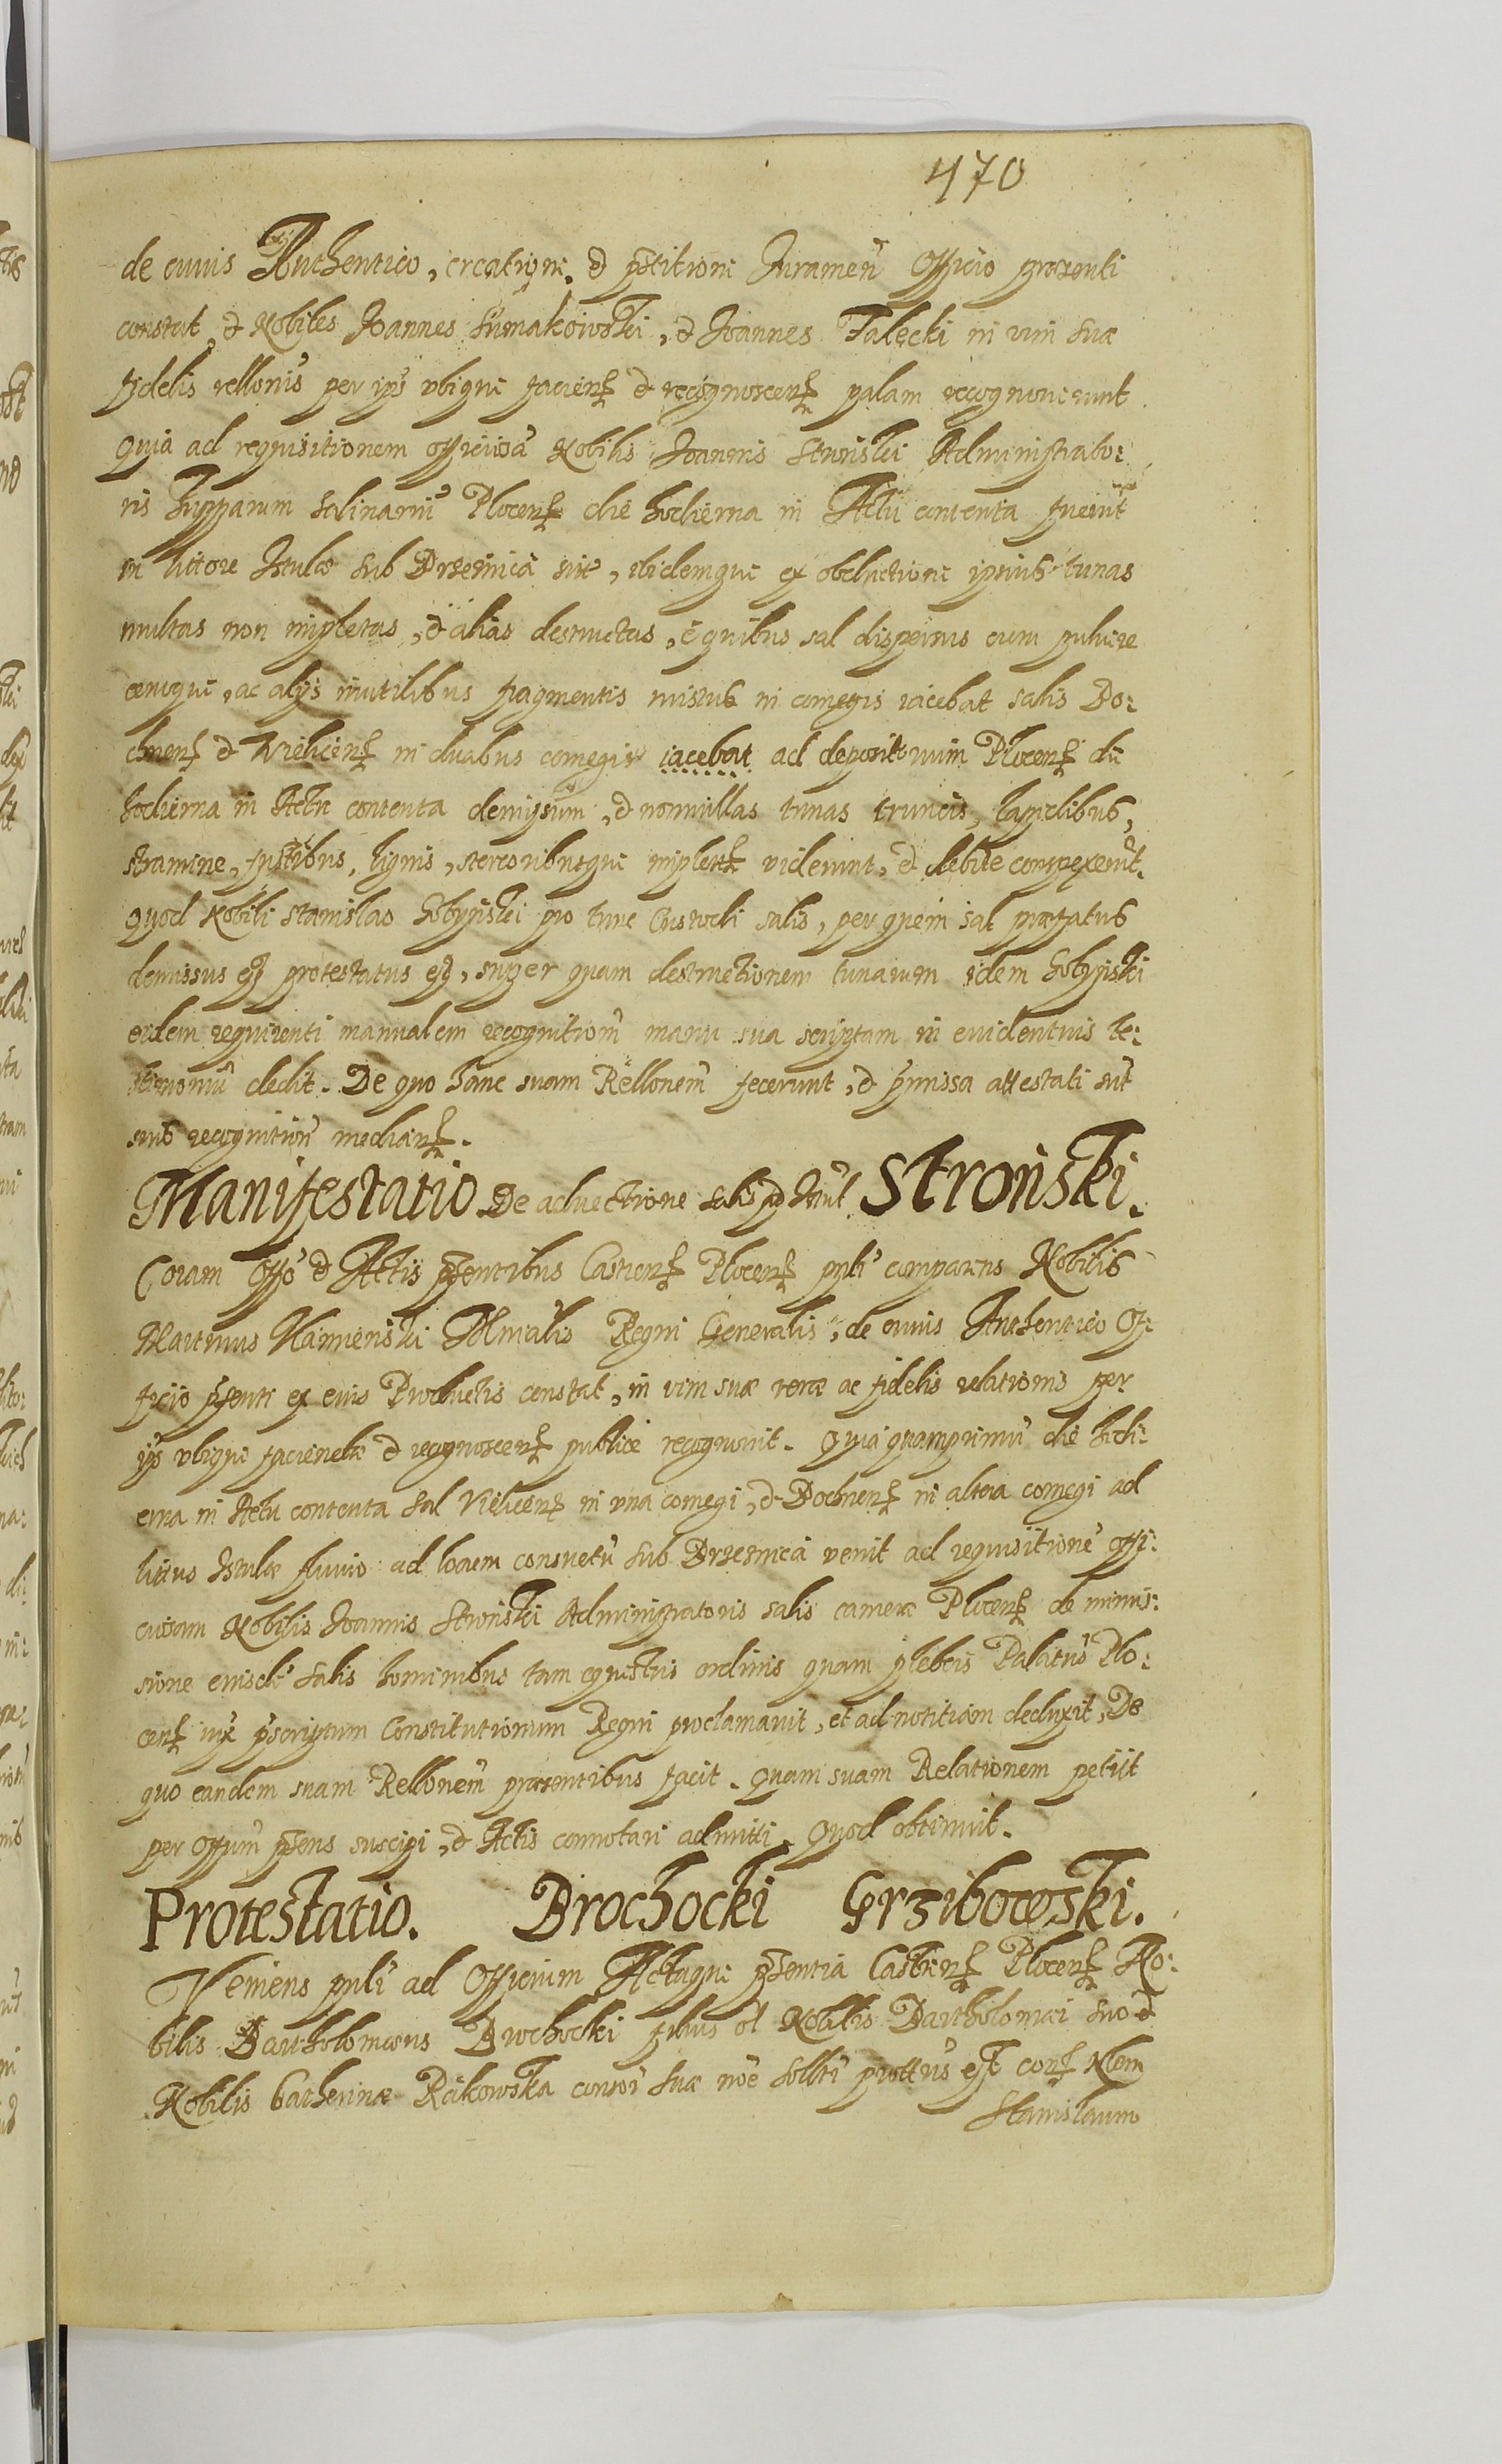 470
de cuius Authentico, creatione, & pstitione Juramen Officio praesenti
constat, & Nobiles Joannes Sumakowski, & Joannes Falęcki in vim suae
fidelis rellonis per ips ubique facien & recognoscen palam recognouerunt
Quia ad requisitionem officiosa Nobilis Joannis Stroński Administrato:
ris Zupparum Salinariu Plocen die hodierna in Actu contenta fuerut
in littore Istulae sub Brzeznica site, ibidemque ex obductione ipsius tunas
multas non impletas, & alias destructas, e quibus sal dispersus cum puluere
cenoque, ac alijs inutilibus fragmentis mistus in comegis iacebat salis Bo:
chnen & Vielicen in duabus comegis iacebat ad depositorium Plocen die
hodierna in Actu contenta demissum, & nonnullas tunas truncis, lapidibus,
stramine, fustibus, lignis, stercoribusque implen viderunt, & debite conspexerut.
Quod Nobili Stanislao pro tunc Custodi salis, per quem sal praefatus
demissus est protestatus est, super quam destructionem tunarum idem
eidem requirenti manualem recognitionem manu sua scriptam in euidentius te:
stimoniu dedit. De quo hanc suam Rellonem fecerunt, & pmissa attestati sut
suis recognition median.
Manifestatio De aduectione salis Stroński.
Coram Offo & Actis psentibus Castren Plocen psli comparens Nobilis
Martinus Kamieński Mnialis Regni Generalis, de cuius Authentico Of:
ficio psenti ex eius Productis constat, in vim suae verae ac fidelis relationis per
ips ubique faciendae & recognoscen publice recognouit. Quia quamprimu die hodi:
erna in Actu contenta Sal Vielicen in una comegi, & Bochnen in altera comegi ad
littus Istulae fluuio ad locum consuetu sub Brzeznica venit ad requisitione offi:
ciosam Nobilis Joannis Stroński Administratoris salis camerae Plocen de inmis:
sione eiusdē salis hominibus tam equestris ordinis quam plebeis Palatus Plo:
cen iux pscriptum Constitutionum Regni proclamauit, et ad notitiam deduxit, De
quo eandem suam Rellonem praesentibus facit. Quam suam Relationem petijt
per Offum psens suscipi, & Actis connotari admitti. Quod obtinuit.
Protestatio. Brochocki Grzibowski.
Veniens psli ad Officium Actaque psentia Castren Plocen No:
bilis Bartholomaeus Brochocki filius ol Nobilis Bartholomaei suo &
Nobilis Catherinae Rakowska consor suae noe sollti prottus est con Nlem
Stanislaum